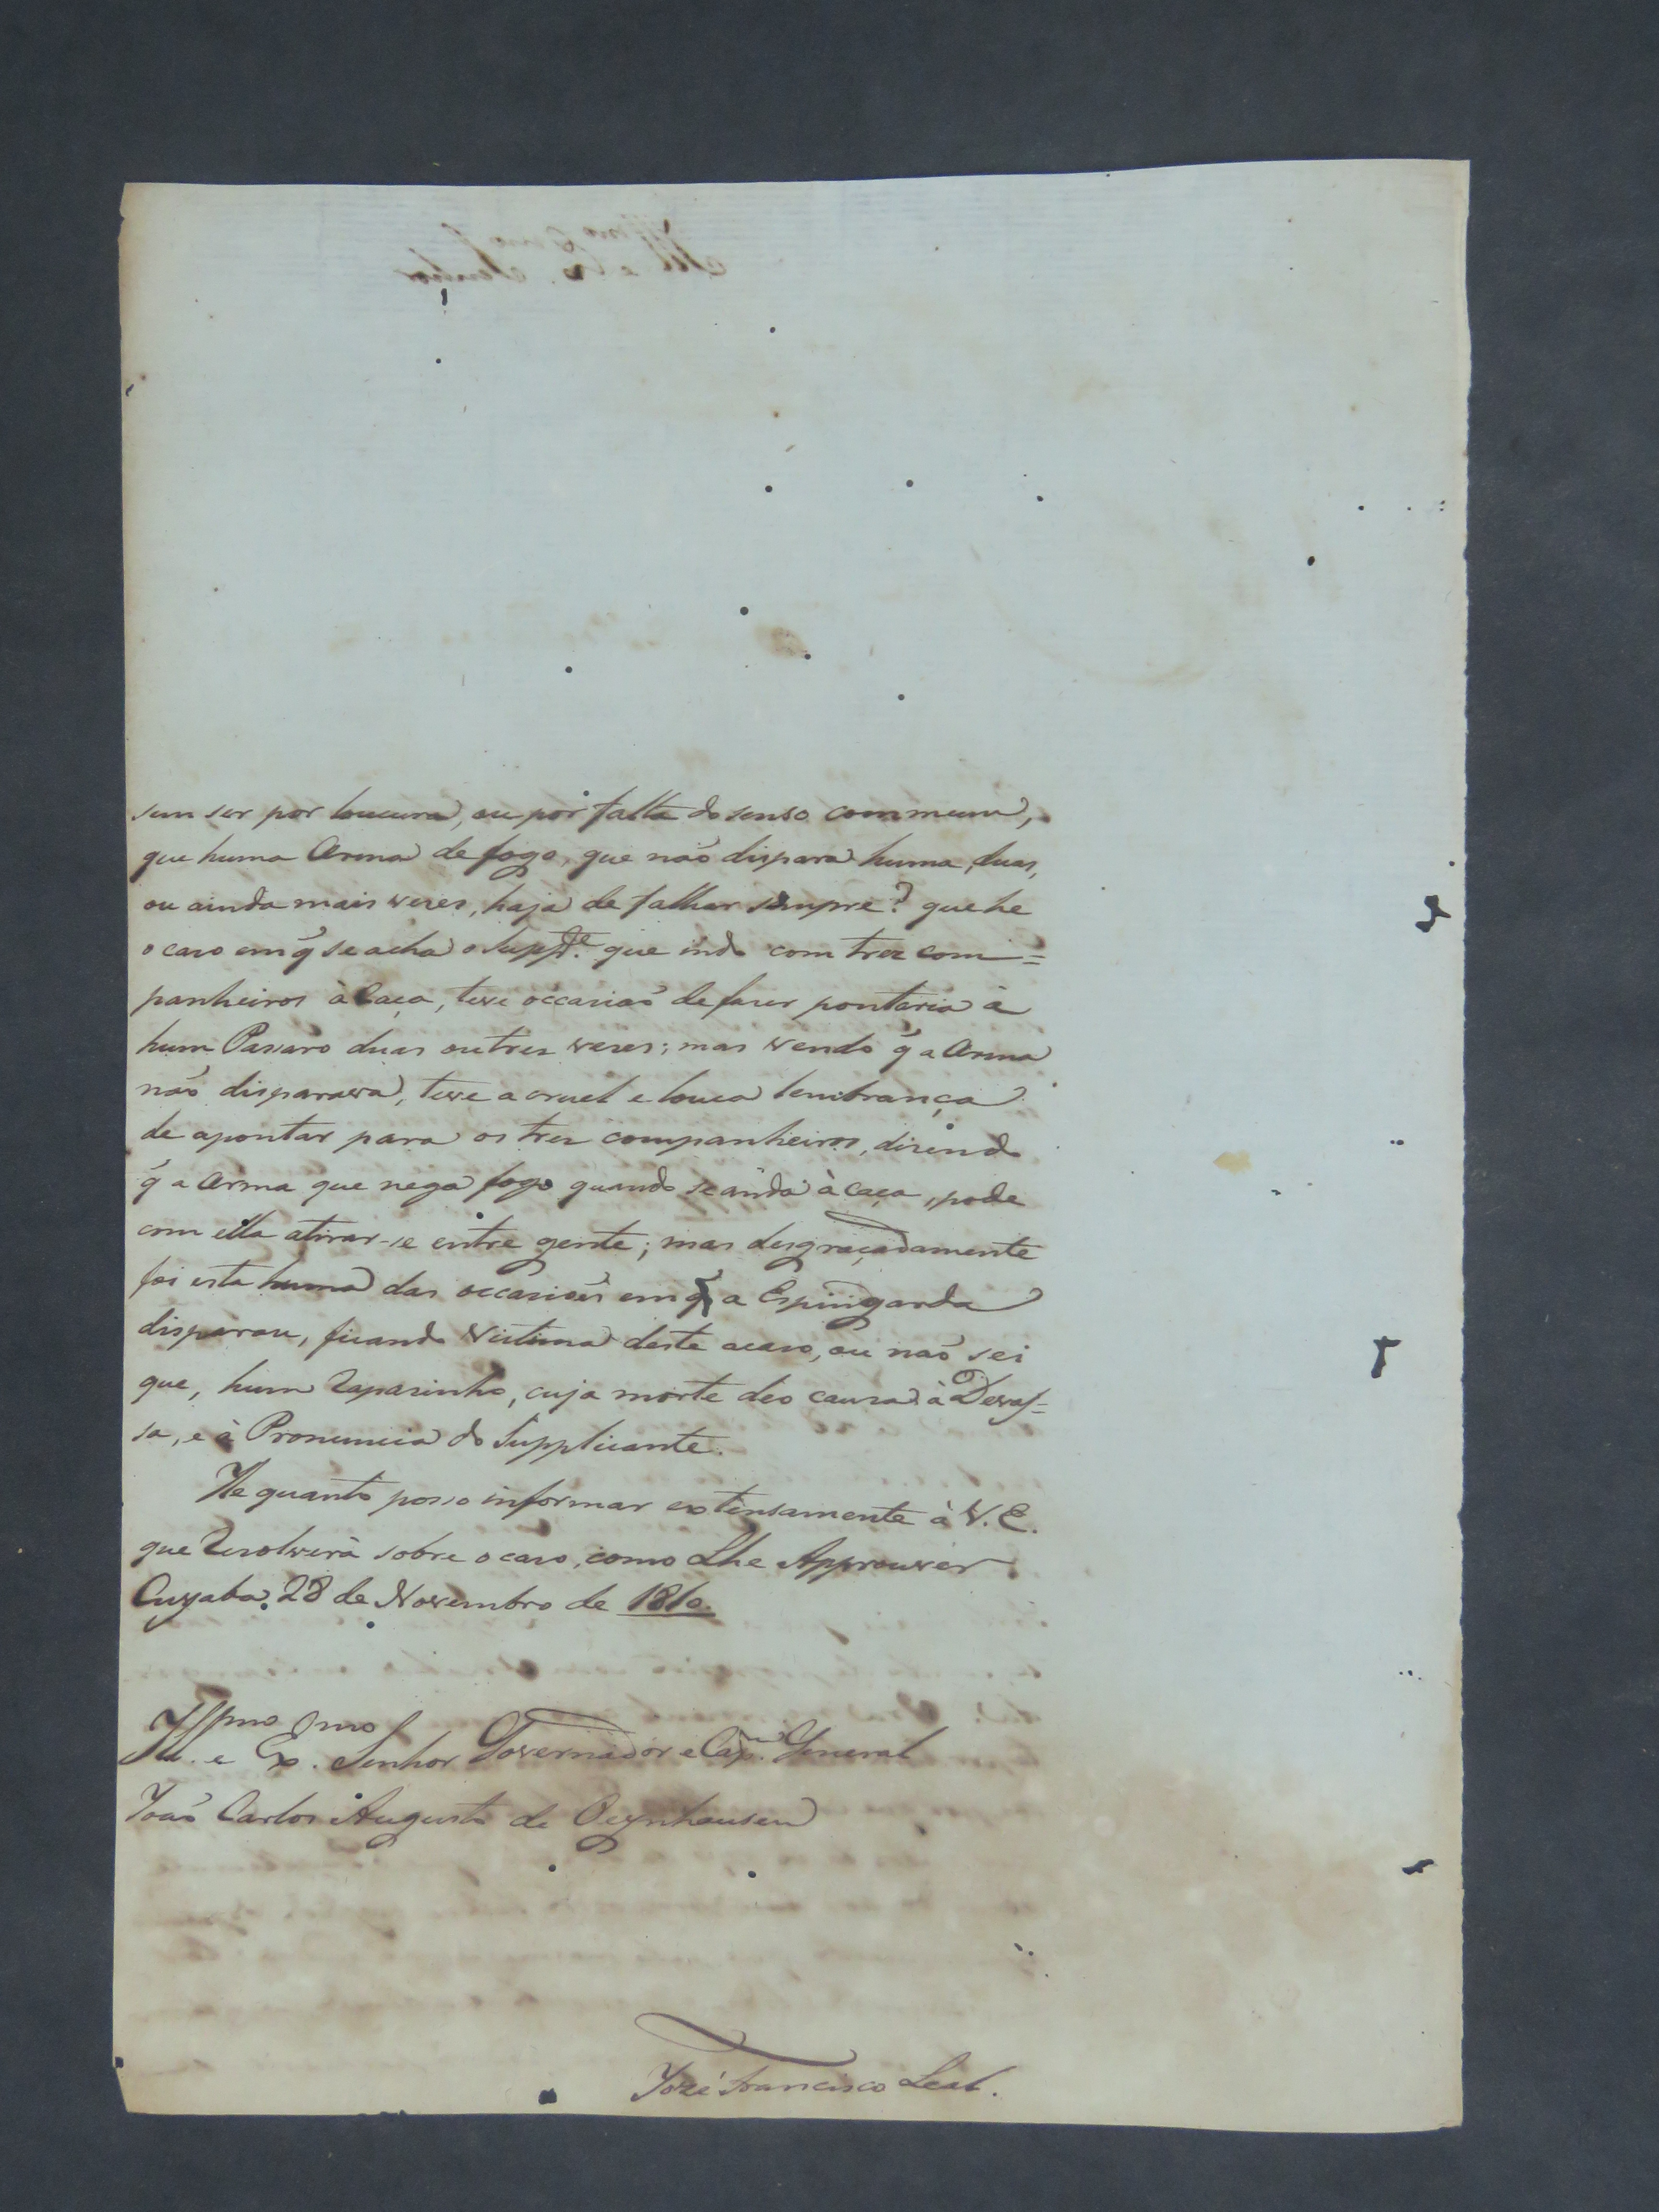 sem ser por loucura, ou por falta do senso commum,
que huma Arma de fogo, que não dispara huma, duas,
ou ainda mais vezes, haja de falhar sempre? que he
o caso em q̃ se acha o Suppte. que indo com trez com=
panheiros à Caça, teve occasiaõ de fazer pontaria à
hum Passaro duas ou trez vezes; mas vendo q̃ a Arma
naõ disparava, teve a cruel e louca lembrança
de apontar para os trez companheiros, dizendo
q̃ a Arma que nega fogo quando se anda à caça, pode
com ella atirar-se entre gente; mas desgraçadamente
foi esta huma das occasioẽs em q̃ a Espingarda
disparou, ficando victima deste acaso, ou naõ sei
que, hum Rapazinho, cuja morte deo causa à Devas=
sa, e à Pronuncia do Supplicante.
He quanto posso informar extensamente à V. E.
que Resolverà sobre o caso, como Lhe Approuver.
Cuyaba. 28 de Novembro de 1810.
Illmo. e Exmo. Senhor Governador e Capm. General
Joaõ Carlos Augusto de Oeynhausen
Jozé Francisco Leal.